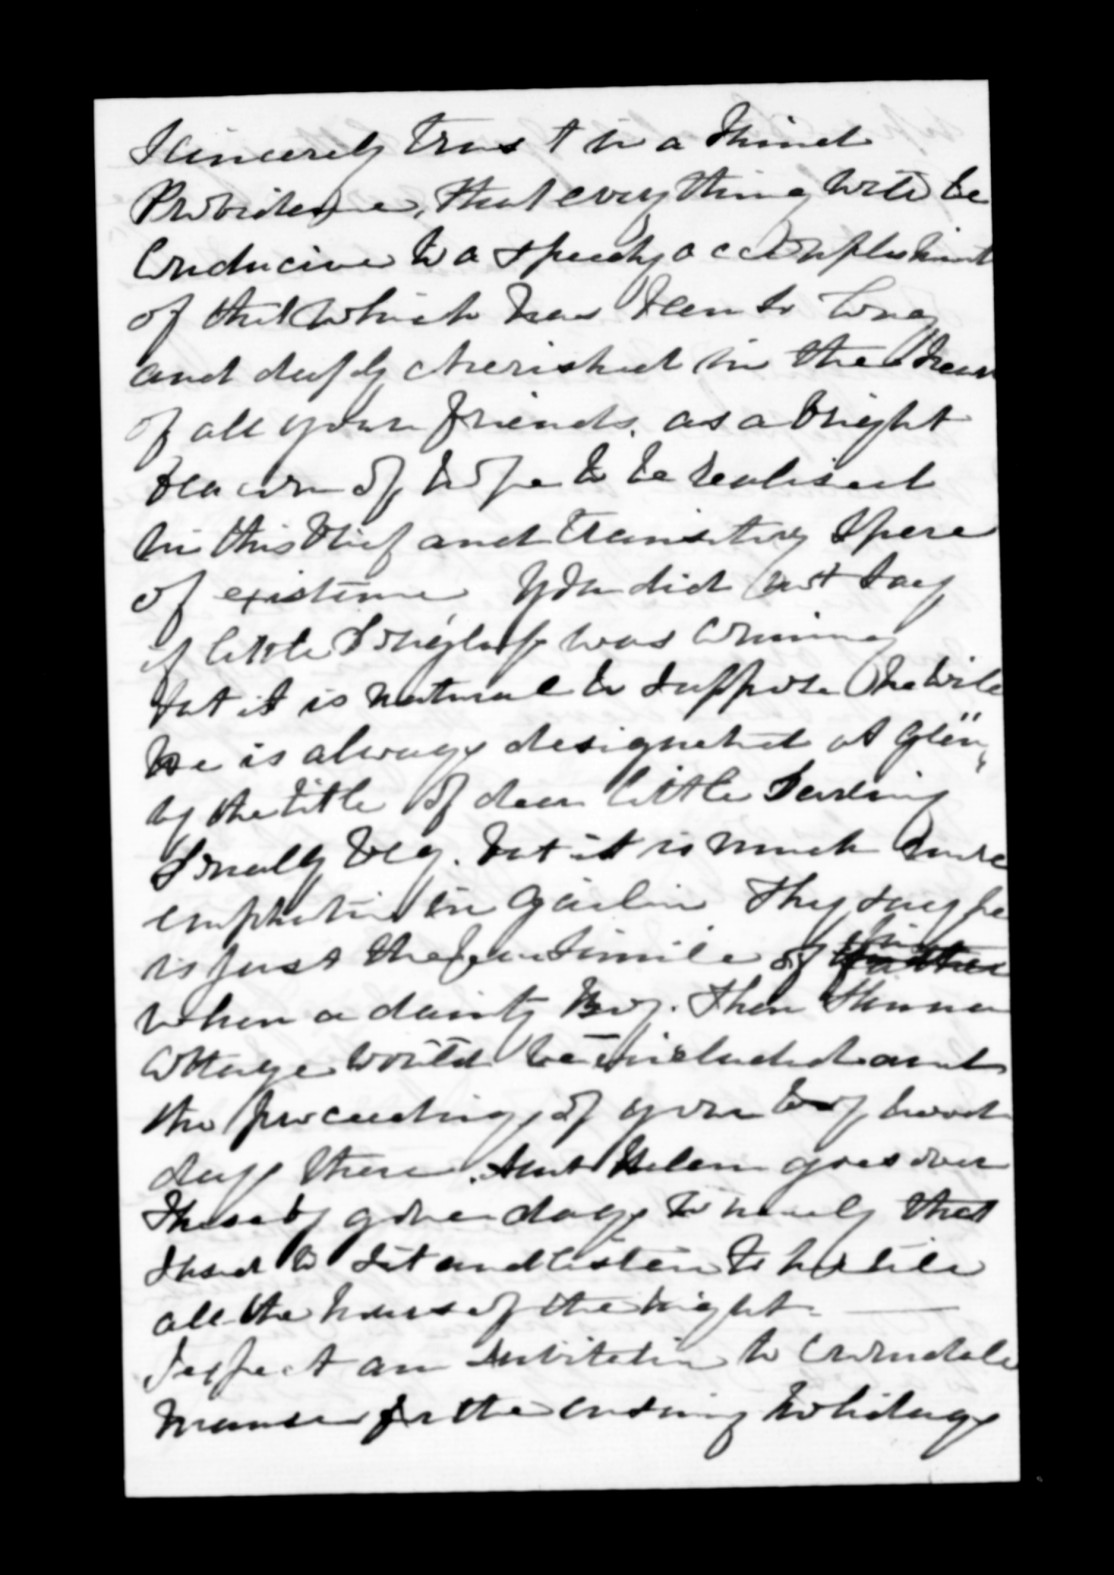 I sincerely trust in a kind
Providence, that everything will be
Conducive to a speedy accomplishment
of that which has been so long
and deeply cherished in the hearts
of all your friends, as a bright
beacon of hope to be realised
in this brief and transitory spere
of existence You did not say
if little was coming
but it is natural to suppose he will
he is always designated at Glen
by the title of dear little darling
Donally beg. but it is much more
emphatic in Gailic They say he
is just the facsimile of
when a dainty boy. Then
Cottage would be included and
the proceedings of your boyhood
days there. Aunt Helen goes over
these by gone days so nicely that
I used to sit and listen to her till
all the hours of the night. —
I expect an invitation to
Manse for the ensuing holidays